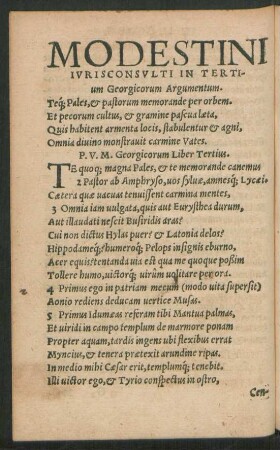 MODESTINI
IVRISCONSVLTI IN TERTI-
um Georgicorum Argumentum.
Teq́; Pales, & pastorum memorande per orbem.
Et pecorum cultus, & gramine pascua læta,
Quis habitent armenta locis, stabulentur & agni,
Omnia diuino monstrauit carmine Vates.
P. V. M. Georgicorum Liber Tertius.
TE quoq; magna Pales, & te memorande canemus
2 Pastor ab Amphryso, uos syluæ, amnesq́; Lycæi.
Cætera quæ uacuas tenuissent carmina mentes,
3 Omnia iam uulgata, quis aut Eurysthea durum,
Aut illaudati nescit Busiridis aras?
Cui non dictus Hylas puer? & Latonia delos?
Hippodameq́; humeroq́; Pelops insignis eburno,
Acer equis? tentanda uia est qua me quoque poßim
Tollere humo, uictorq́; uirûm uolitare per ora.
4 Primus ego in patriam mecum (modo uita supersit)
Aonio rediens deducam uertice Musas.
5 Primus Idumæas referam tibi Mantua palmas,
Et uiridi in campo templum de marmore ponam
Propter aquam, tardis ingens ubi flexibus errat
Myncius, & tenera prætexit arundine ripas.
In medio mihi Cæsar erit, templumq́; tenebit.
Illi uictor ego, & Tyrio conspectus in ostro,
Cen-